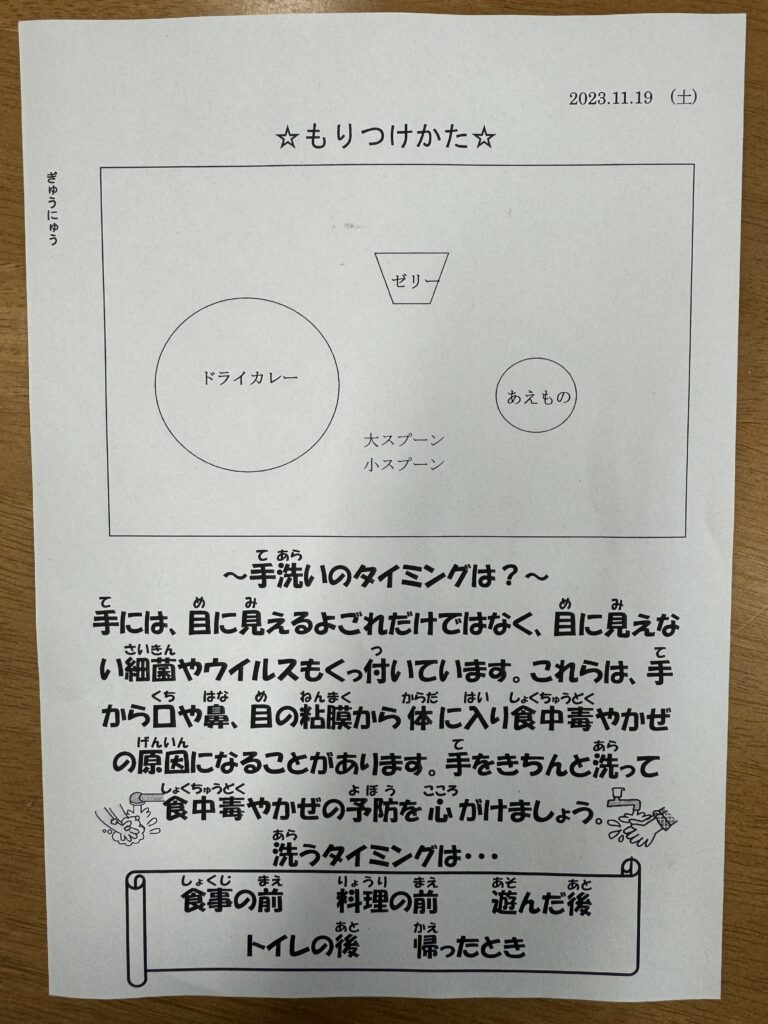 2023.11.19 (土)
☆もりつけかた☆
ぎゅうにゅう
ゼリー
ドライカレー
あえもの
大スプーン
小スプーン
～手洗いのタイミングは？～
手には、目に見えるよごれだけではなく、目に見えな
い細菌やウイルスもくっ付いています。これらは、手
から口や鼻、目の粘膜から体に入り食中毒やかぜ
の原因になることがあります。手をきちんと洗って
食中毒やかぜの予防を心がけましょう。
洗うタイミングは・・・
食事の前 料理の前 遊んだ後
トイレの後 帰ったとき